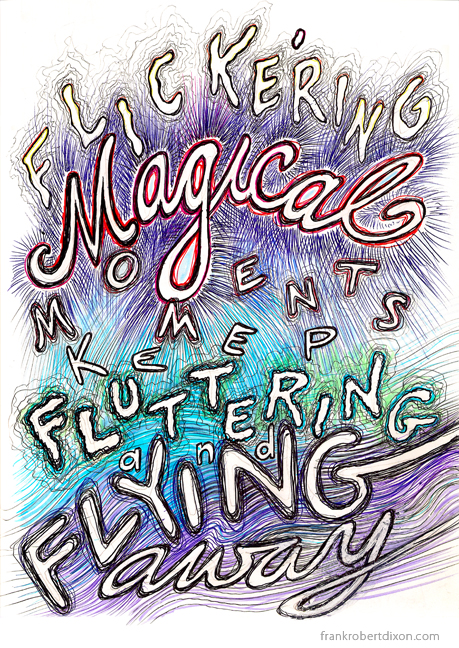 FLICKERING
Magical
MOMENTS
KEEP
FLUTTERING
and
FLYING
away
frankrobertdixon.com